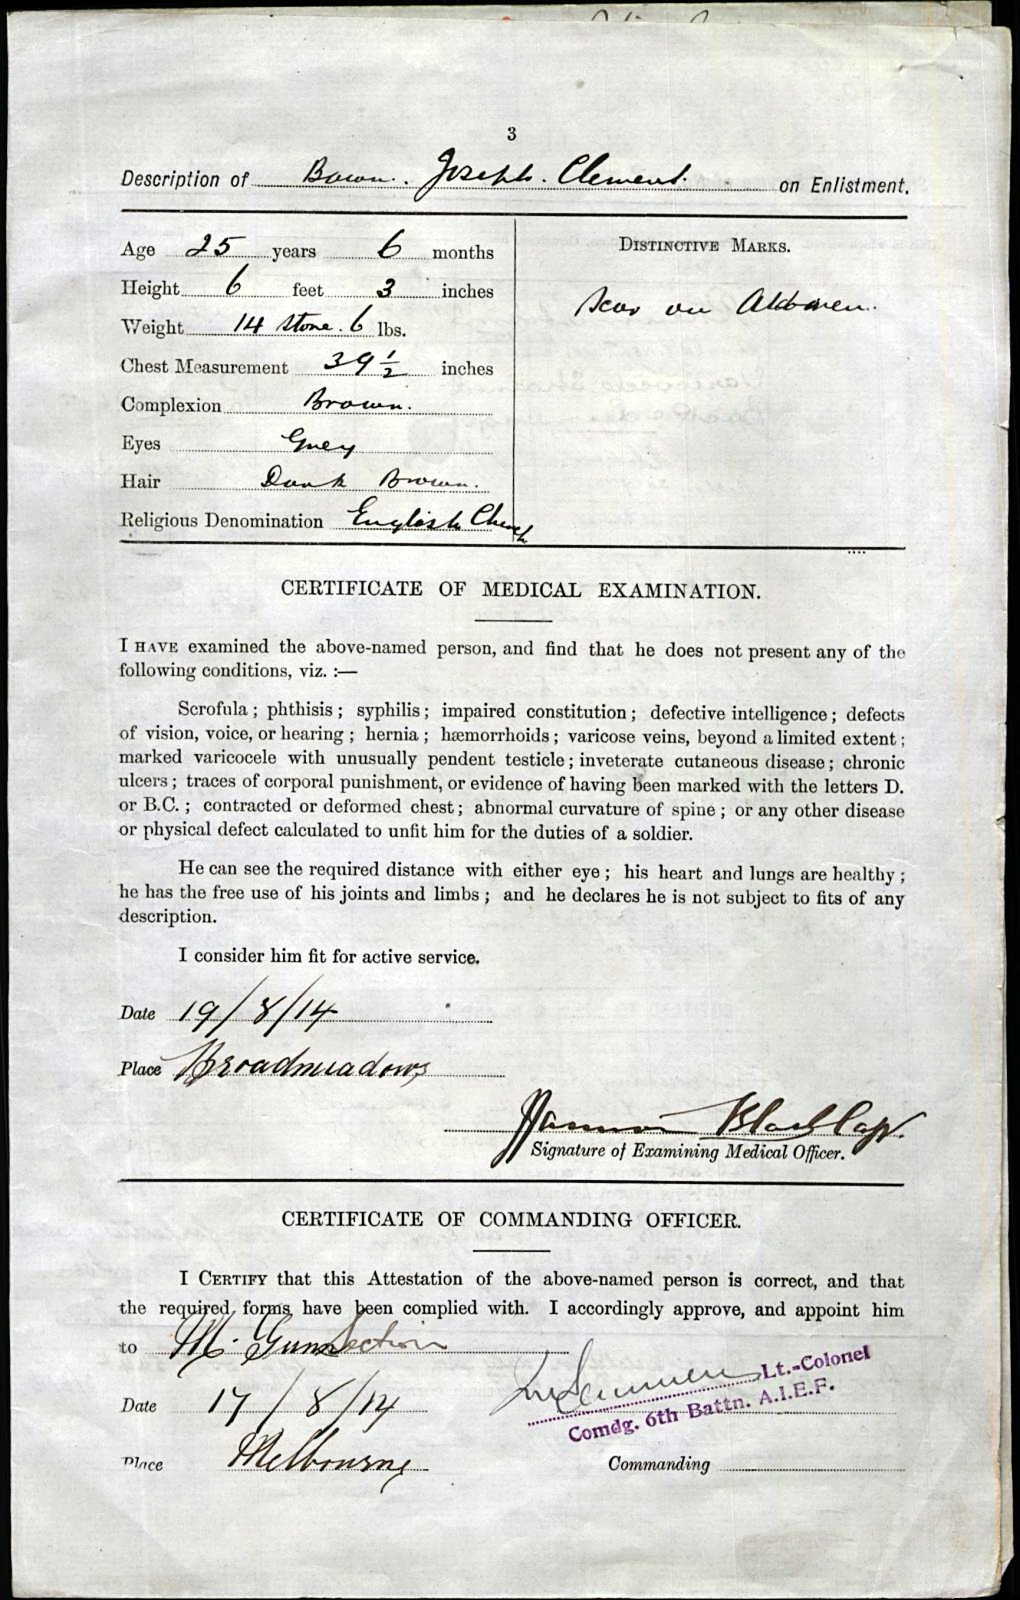 3
Description of Bown. Joseph. Clement. on Enlistment.
Age 25 years 6 months
Height 6 feet 3 inches
Weight 14 stone. 6 lbs.
Chest Measurement 39 1/2 inches
Complexion Brown.
Eyes Grey
Hair Dark Brown.
Religious Denomination English Church
DISTINCTIVE MARKS.
Scar on Abdomen.
CERTIFICATE OF MEDICAL EXAMINATION.
I HAVE examined the above-named person, and find that he does not present any of the
following conditions, viz. :—
Scrofula ; phthisis ; syphilis ; impaired constitution ; defective intelligence ; defects
of vision, voice, or hearing ; hernia ; hæmorrhoids ; varicose veins, beyond a limited extent ;
marked varicocele with unusually pendent testicle ; inveterate cutaneous disease ; chronic
ulcers ; traces of corporal punishment, or evidence of having been marked with the letters D.
or B.C. ; contracted or deformed chest ; abnormal curvature of spine ; or any other disease
or physical defect calculated to unfit him for the duties of a soldier.
He can see the required distance with either eye ; his heart and lungs are healthy ;
he has the free use of his joints and limbs ; and he declares he is not subject to fits of any
description.
I consider him fit for active service.
Date 19/8/14
Place Broadmeadows
Capt.
Signature of Examining Medical Officer.
CERTIFICATE OF COMMANDING OFFICER.
I CERTIFY that this Attestation of the above-named person is correct, and that
the required forms have been complied with. I accordingly approve, and appoint him
to M. Gun Section
Lt.-Colonel
Comdg. 6th Battn. A.I.E.F.
Date 17/8/14
Place Melbourne
Commanding